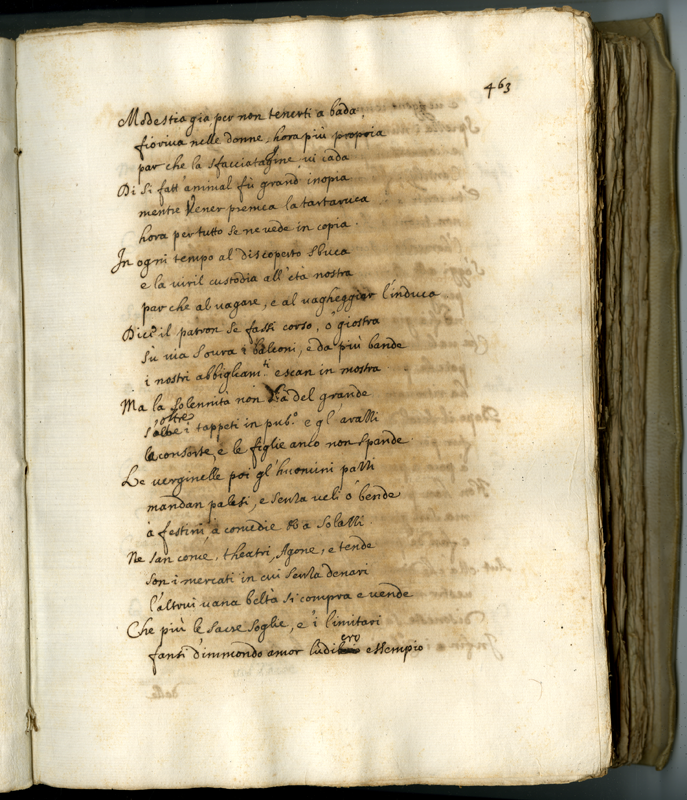 463
Modestia gia per non tenerti a bada,
fioriva nelle donne, hora più propria
par che la sfacciatagine vi cada
Di si fatt'animal fù grand'inopia
mentre Vener premea la tartaruca
hora per tutto se ne vede in copia.
In ogni tempo al discoperto sbuca
e la viril custodia all'età nostra
par che al vagare, e al vagheggiar l'induca
Dice il patron se fassi corso, ò giostra
sù via soura i balconi, e da più bande
i nostri abbigliam.ti escan in mostra
Ma la solennità non ha del grande
s'oltre i tappeti in pub.o e gl'avalli
la consorte, e le figlie anco non spande
Le verginelle poi gl'huomini palli
mandan palesi, e senza veli ò bende
à festini, a comedie & a solalli
Ne san come, theatri, Agone, e tende
son i mercati in cui senza denari
l'altrui vana beltà si compra e vende
Che più le sacre soglie, e i limitari
fansi d'immondo amor ludibero essempio
dalle